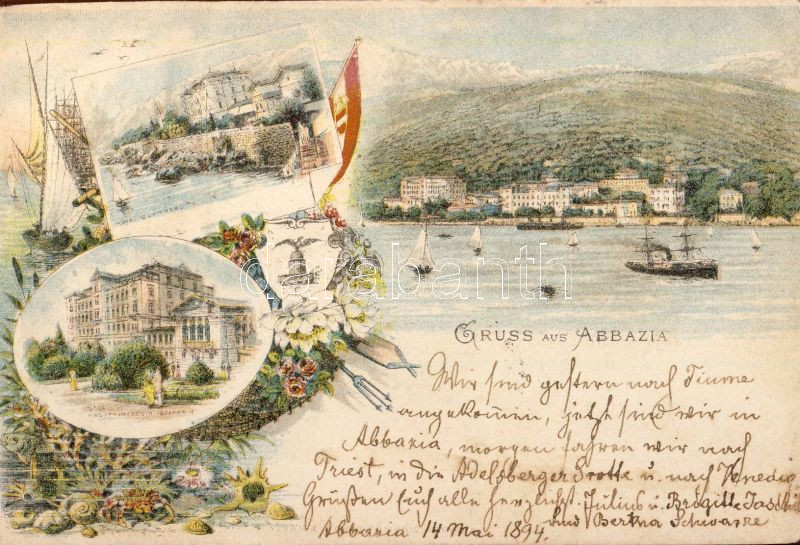 HOTEL
KRONPRINZESSIN STEFANIE
GRUSS AUS ABBAZIA
darabanth
Wir sind gestern nach Fiume
angekommen, jetzt sind wir in
Abbazia, morgen fahren wir nach
Triest, in die Adelsberger Grotte u. nach Venedig
Grüßen Euch alle herzlichst. Julius u. Brigitte
und Bertha Schwarze
Abbazia 14 Mai 1894.